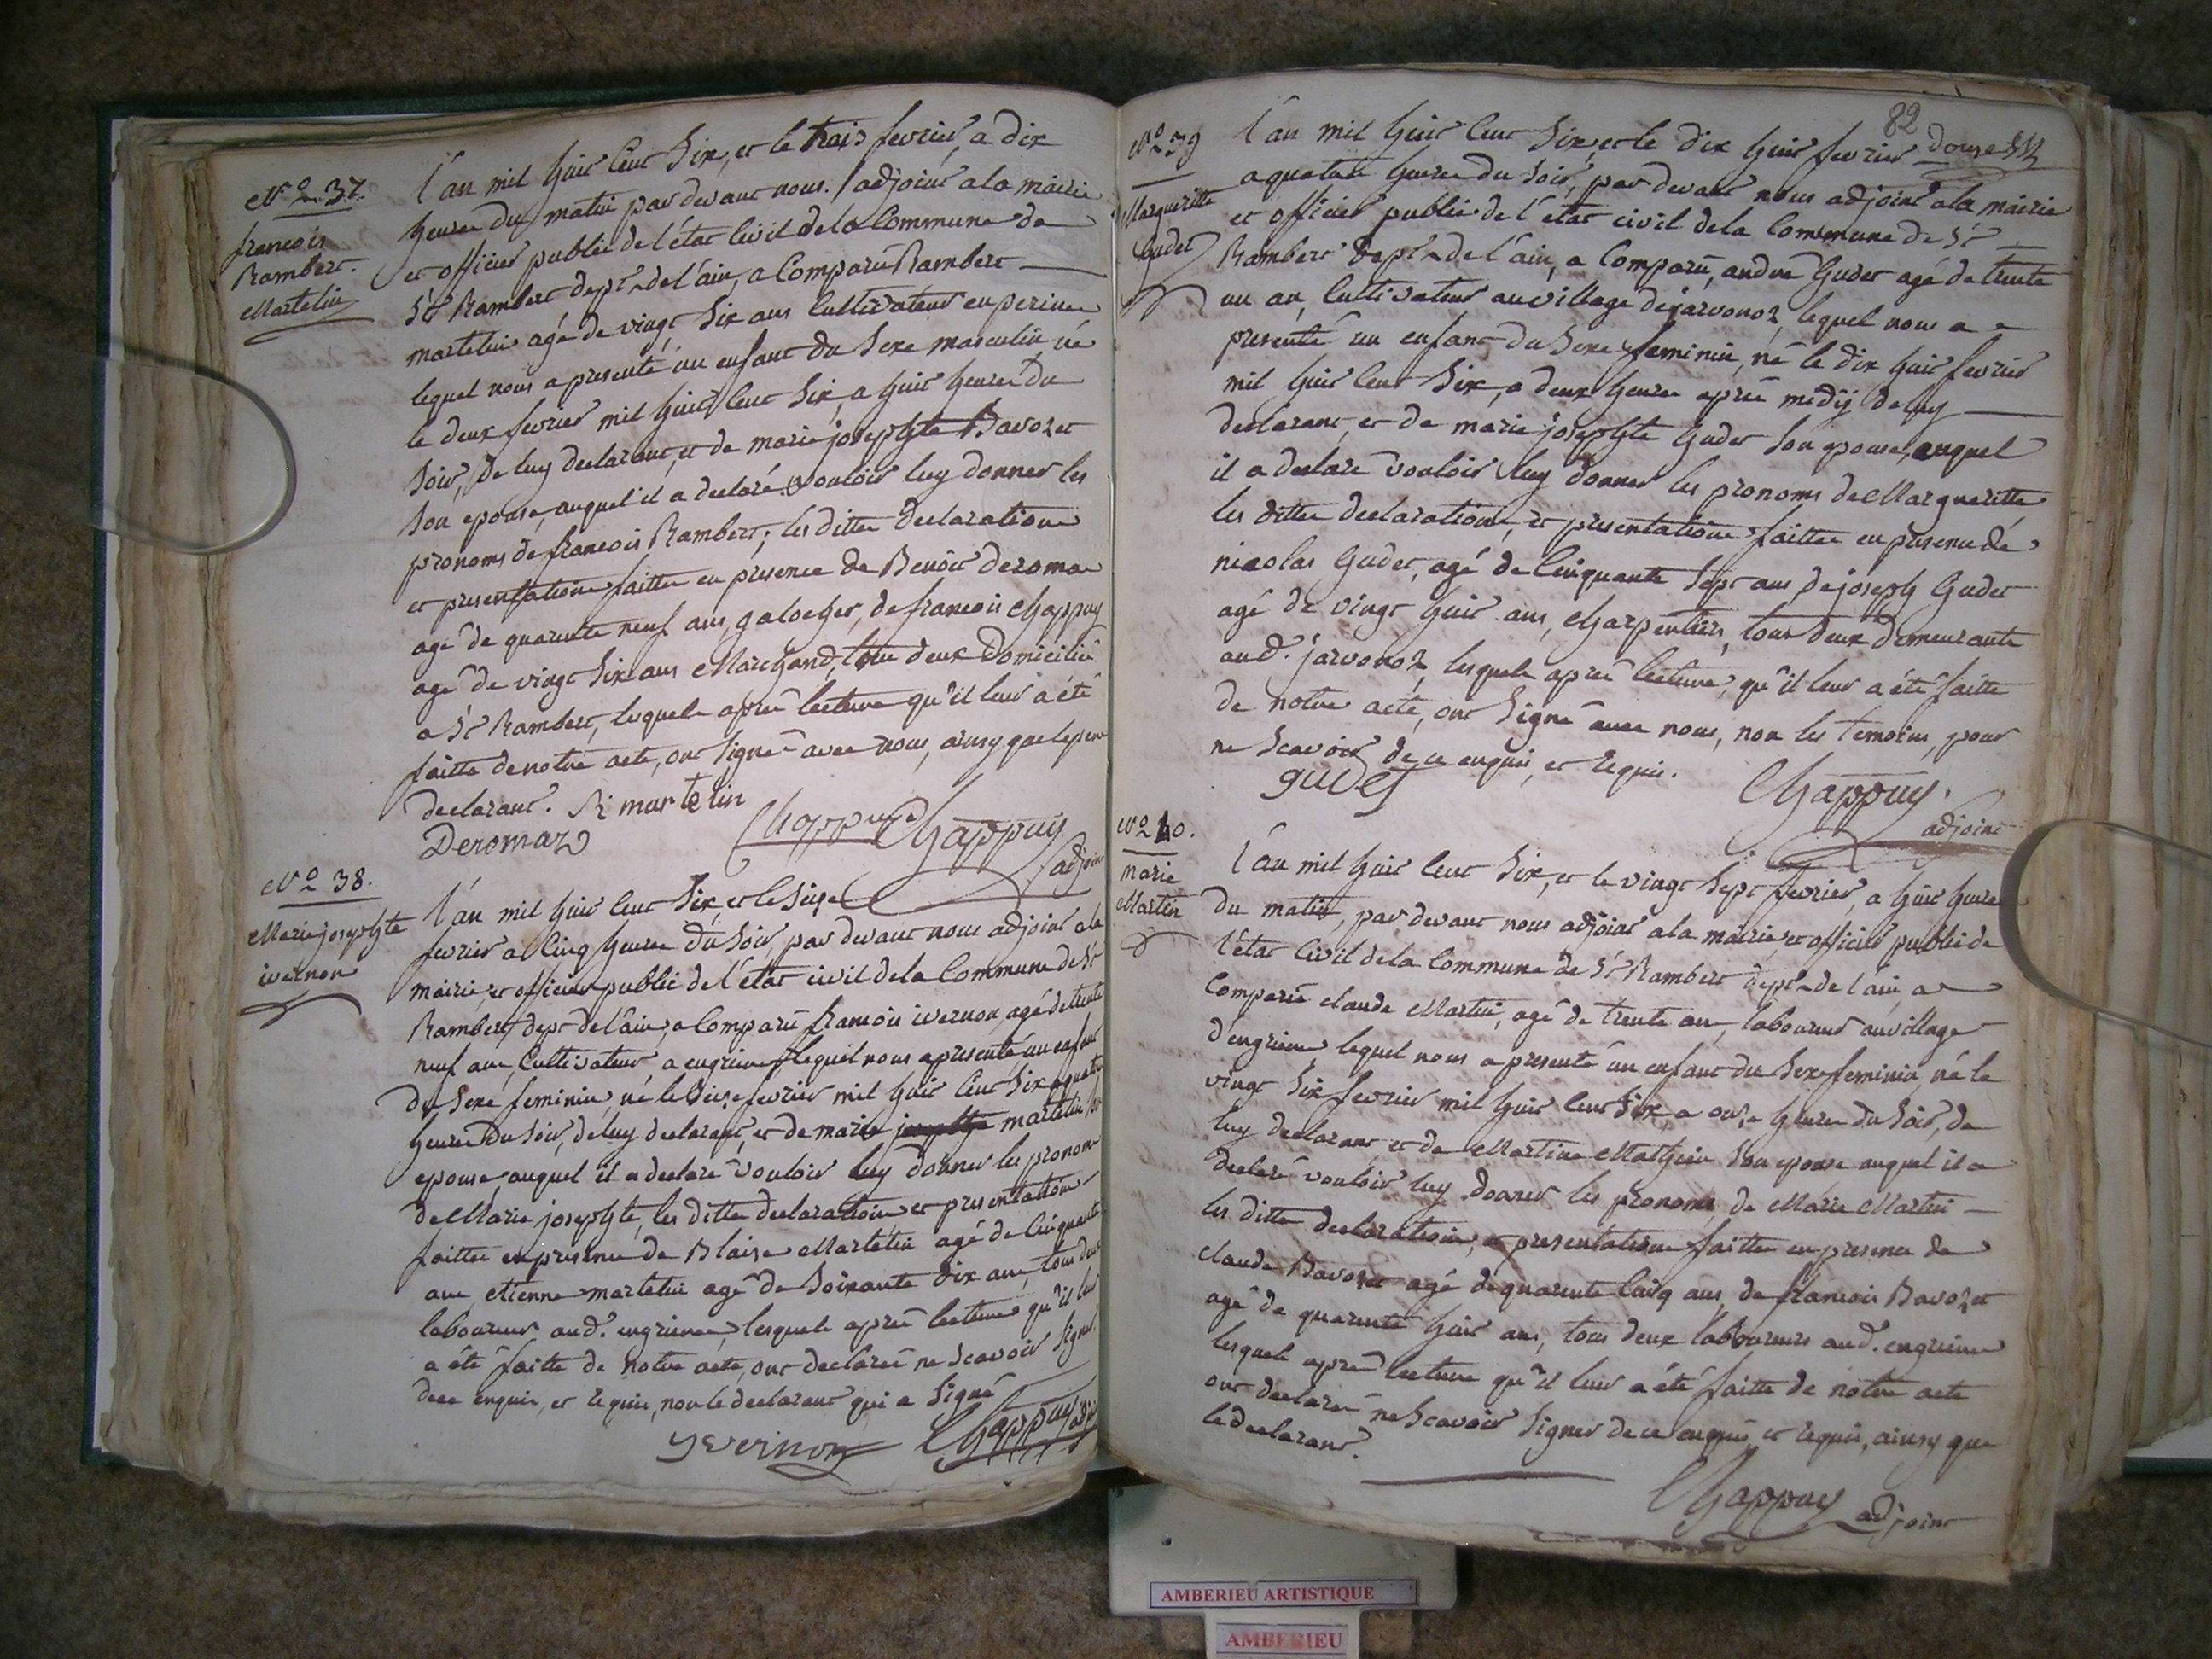 N.o 37.
francois
Rambert.
Martelin
L'an mil huit Cent Six, et le trois fevrier, a dix
heures du matin par devant nous. adjoint a la mairie
et officier public de l'état Civil de la Commune de
St Rambert, dept. de l'ain, a Comparu Rambert
martelin agé de vingt Six ans Cultivateur en
lequel nous a presenté un enfant du Sexe masculin né
le deux fevrier mil huit Cent Six, a huit heures du
Soir, de luy declarant, et de marie josephte Bavozet
Son epouse, auquel il a declaré vouloir luy donner les
pronoms de francois Rambert; les dittes declarations
et presentations faittes en presence de Benoit deromas
agé de quarante neuf ans, galocher, de francois Chappuy
agé de vingt Six ans Marchand, tous deux Domiciliés
a St Rambert, lesquels aprés lecture qu'il leur a été
faitte de notre acte, ont Signé avec nous, ainsy que le pere
declarant. R martelin
Deromaz Chappuy Chappuy
adjoint
N.o 38.
Marie josephte
ivernon
L'an mil huit Cent Six, et le Seize
fevrier a Cinq heures du Soir, par devant nous adjoint a la
mairie, et officier public de l'état civil de la Commune de St
Rambert, dept. de l'ain, a Comparu francois ivernon, agé de trente
neuf ans, Cultivateur, a engrieux lequel nous a presenté, un enfant
du Sexe feminin, né le Seize fevrier mil huit Cent Six a quatre
heures du Soir, de luy declarant, et de marie josephte martelin Son
epouse auquel il a declaré vouloir luy donner les pronoms
de Marie josephte, les dittes declarations et presentations
faittes en presence de Blaise Martelin agé de Cinquante
ans etienne martelin agé de Soixante dix ans, tous deux
laboureurs aud. engrieux, lesquels aprés lecture qu'il leur
a été faitte de notre acte, ont declaré ne Scavoir Signer
de ce enquis, et requis, non le declarant qui a Signé
yvernon Chappuy adjt
82
N.o 39
Margueritte
Gudet
L'an mil huit Cent Six, et le dix huit fevrier
a quatre heures du Soir, par devant nous adjoint a la mairie
et officier public de l'état civil de la Commune de St
Rambert Dept. de l'ain, a Comparu, andré Gudet agé de trente
un an, Cultivateur au village de jarvonoz, lequel nous a
presenté un enfant du Sexe feminin, né le dix huit fevrier
mil huit Cent Six, a deux heures aprés midÿ de luy
declarant, et de marie josephte Gudet Son epouse, auquel
il a declaré vouloir luy donner les pronoms de Margueritte
les dittes declarations, et presentations faittes en presence de
nicolas Gudet, agé de Cinquante Sept ans de joseph Gudet
agé de vingt huit ans, Charpentiers, tous deux demeurants
aud. jarvonoz, lesquels aprés lecture, qu'il leur a été faitte
de notre acte, ont Signé avec nous, non les temoins, pour
ne Scavoir de ce enquis, et requis.
gudet Chappuy.
adjoint
N.o 40.
marie
Martin
L'an mil huit Cent Six, et le vingt Sept fevrier, a huit heures
du matin, par devant nous adjoint a la mairie, et officier public de
l'état Civil de la Commune de St Rambert dept. de l'ain, a
Comparu claude Martin, agé de trente ans, laboureur au village
d'engrieux, lequel nous a presenté un enfant du Sexe feminin né le
vingt Six fevrier mil huit Cent Six, a onze heures du Soir, de
luy declarant et de Martine Mathieu Son epouse auquel il a
declaré vouloir luy donner les pronoms de Marie Martin
les dittes declarations, et presentations faittes en presence de
claude Bavozet agé de quarante Cinq ans, de francois Bavozet
agé de quarante huit ans, tous deux laboureurs aud. engrieux
lesquels aprés lecture qu'il leur a été faitte de notre acte
ont declaré ne Scavoir Signer de ce enquis, et requis, ainsy que
le declarant.
Chappuy adjoint
AMBERIEU ARTISTIQUE
AMBERIEU